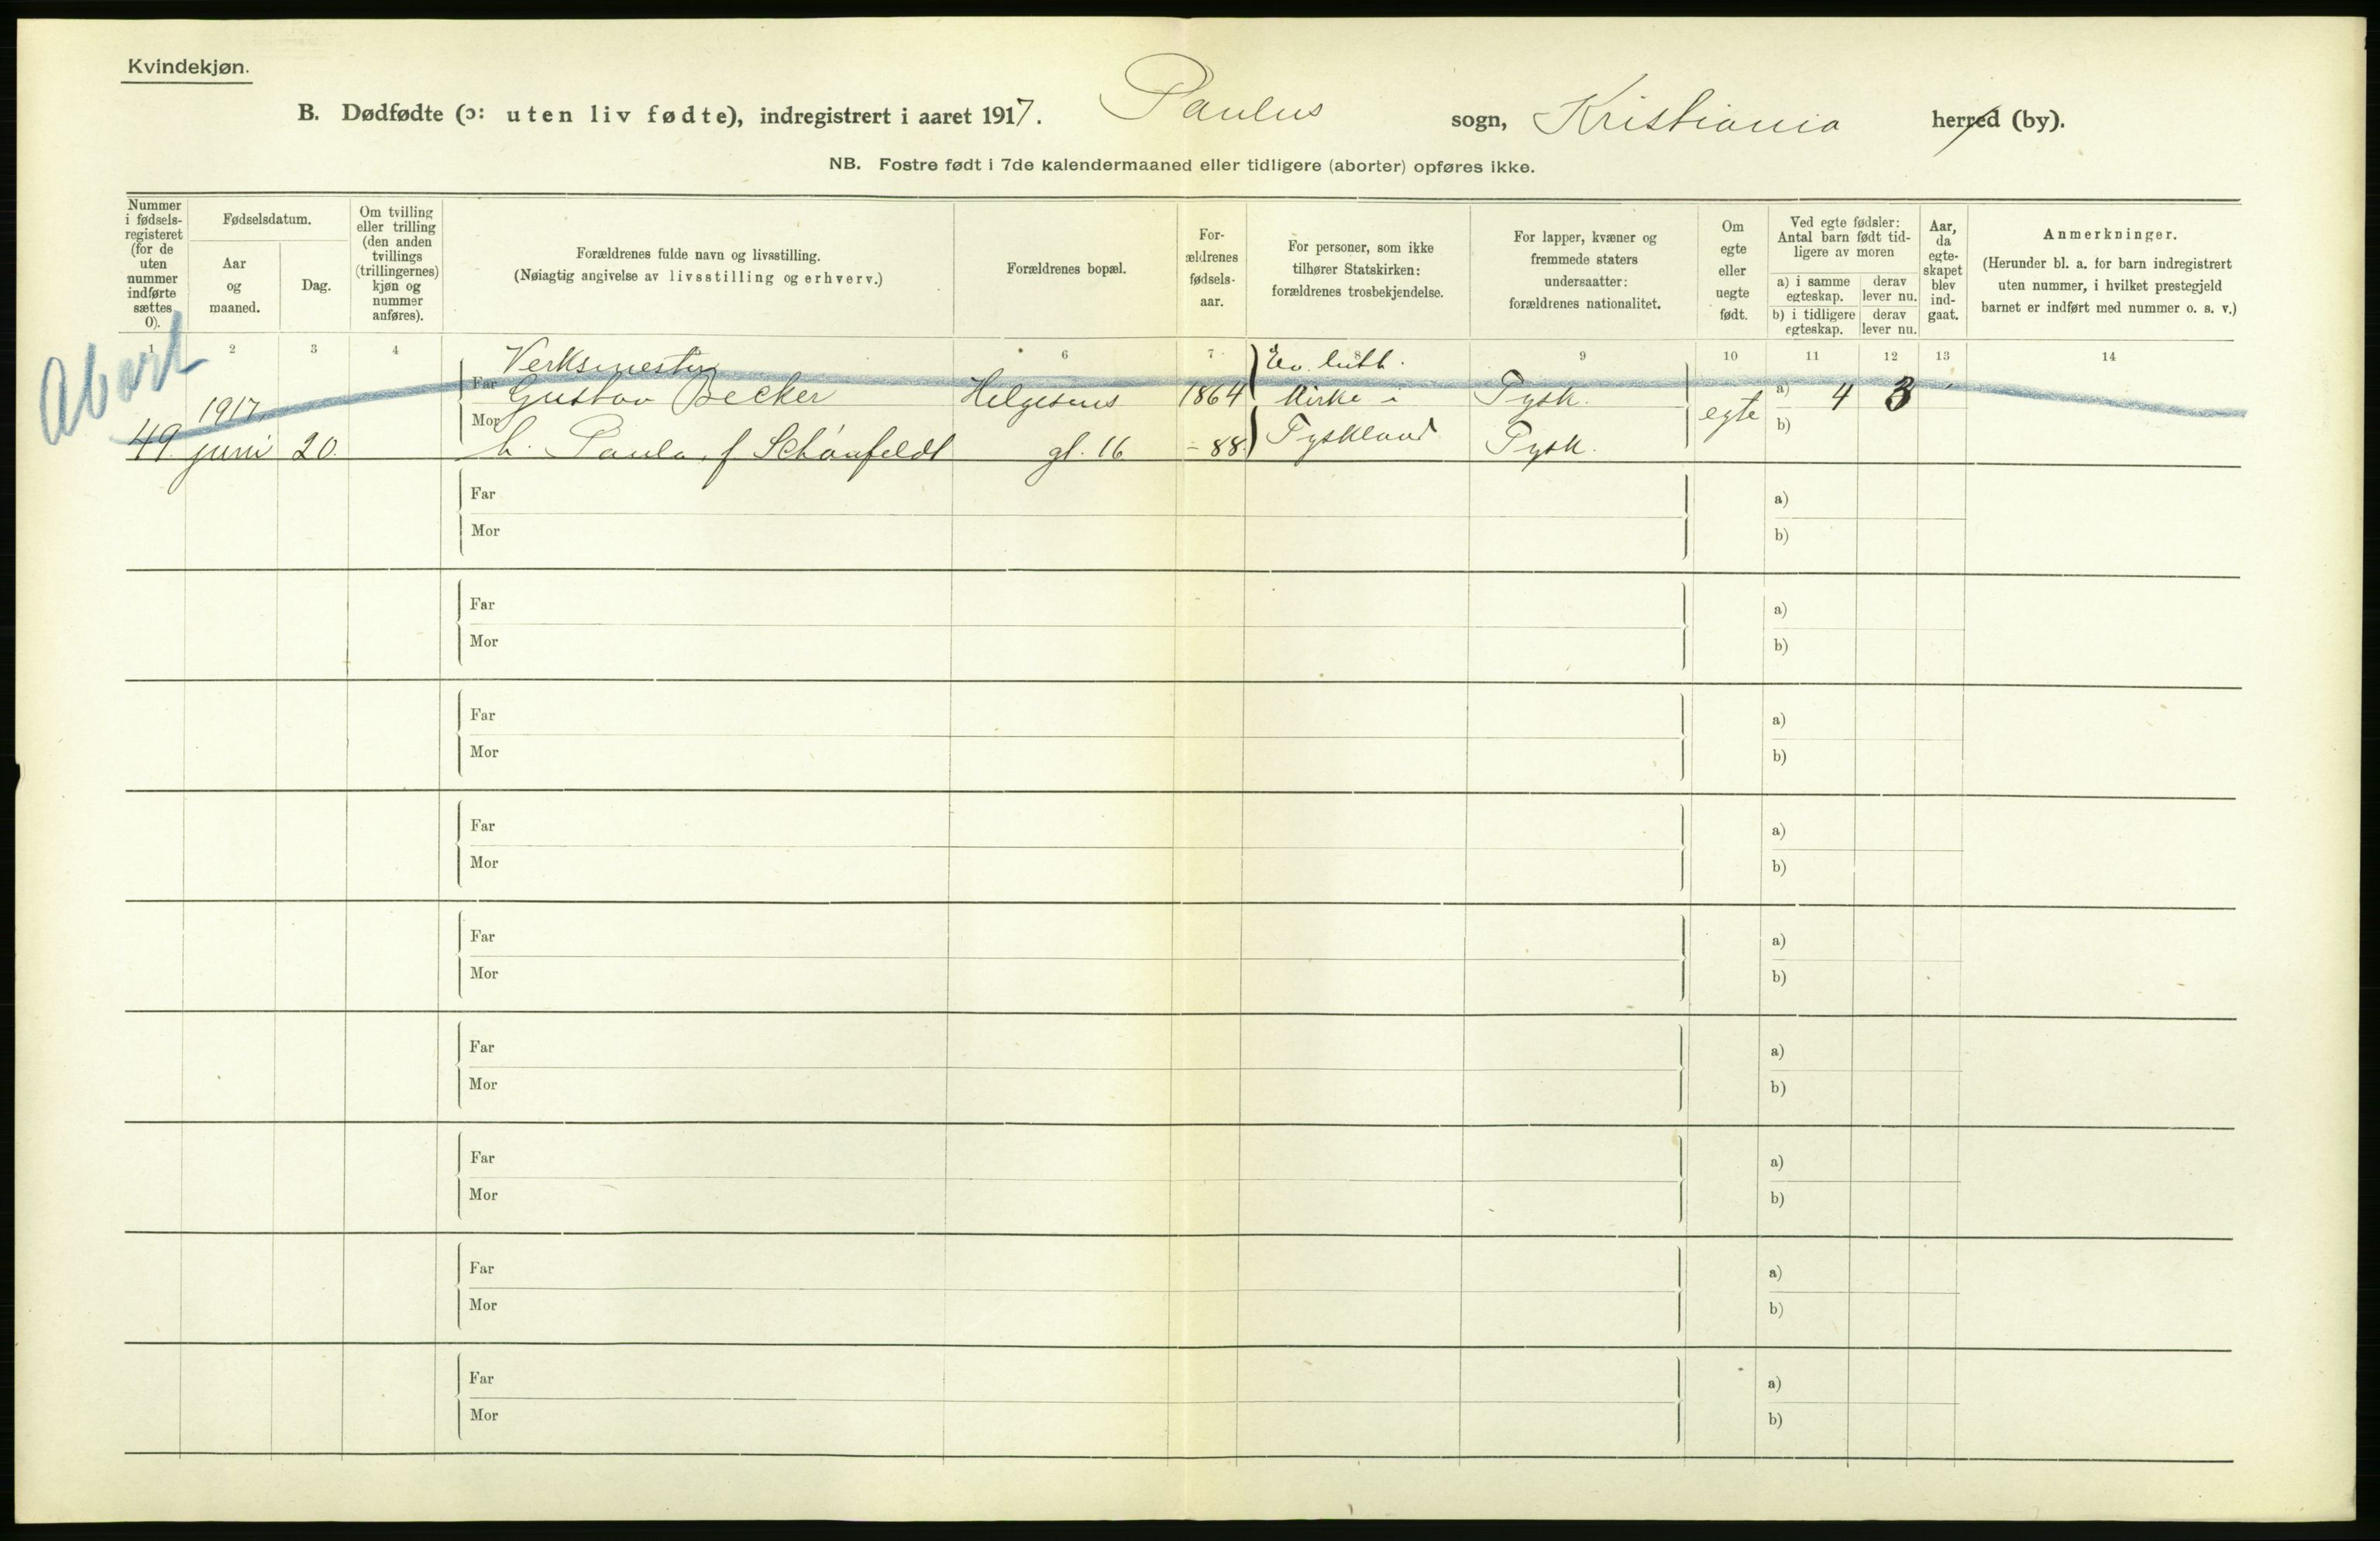 Kvindekjøn.
B. Dødfødte (ɔ: uten liv fødte), indregistrert i aaret 1917. Paulus sogn, Kristiania herred (by).
NB. Fostre født i 7de kalendermaaned eller tidligere (aborter) opføres ikke.
Nummer i fødsels-registeret (for de uten nummer indførte sættes 0).
Fødselsdatum.
Aar og maaned.
Dag.
Om tvilling eller trilling (den anden tvillings (trillingernes) kjøn og nummer anføres).
Forældrenes fulde navn og livsstilling.
(Nøiagtig angivelse av livsstilling og erhverv.)
Forældrenes bopæl.
For-ældrenes fødsels-aar.
For personer, som ikke tilhører Statskirken: forældrenes trosbekjendelse.
For lapper, kvæner og fremmede staters undersaatter: forældrenes nationalitet.
Om egte eller uegte født.
Ved egte fødsler: Antal barn født tid-ligere av moren
a) i samme egteskap.
derav lever nu.
b) i tidligere egteskap.
derav lever nu.
Aar, da egte-skapet blev ind-gaat.
Anmerkninger.
(Herunder bl. a. for barn indregistrert uten nummer, i hvilket prestegjeld barnet er indført med nummer o. s. v.)
1 2 3 4 6 7 8 9 10 11 12 13 14
Abort
Verksmester Ev. luth.
1917 Far Gustav Becker Helgesens 1864 Kirke i Tysk. egte a) 4 3
49. juni 20. Mor h. Paula f. Schönfeldt gt. 16 - 88. Tyskland Tysk. b)
Far a)
Mor b)
Far a)
Mor b)
Far a)
Mor b)
Far a)
Mor b)
Far a)
Mor b)
Far a)
Mor b)
Far a)
Mor b)
Far a)
Mor b)
Far a)
Mor b)